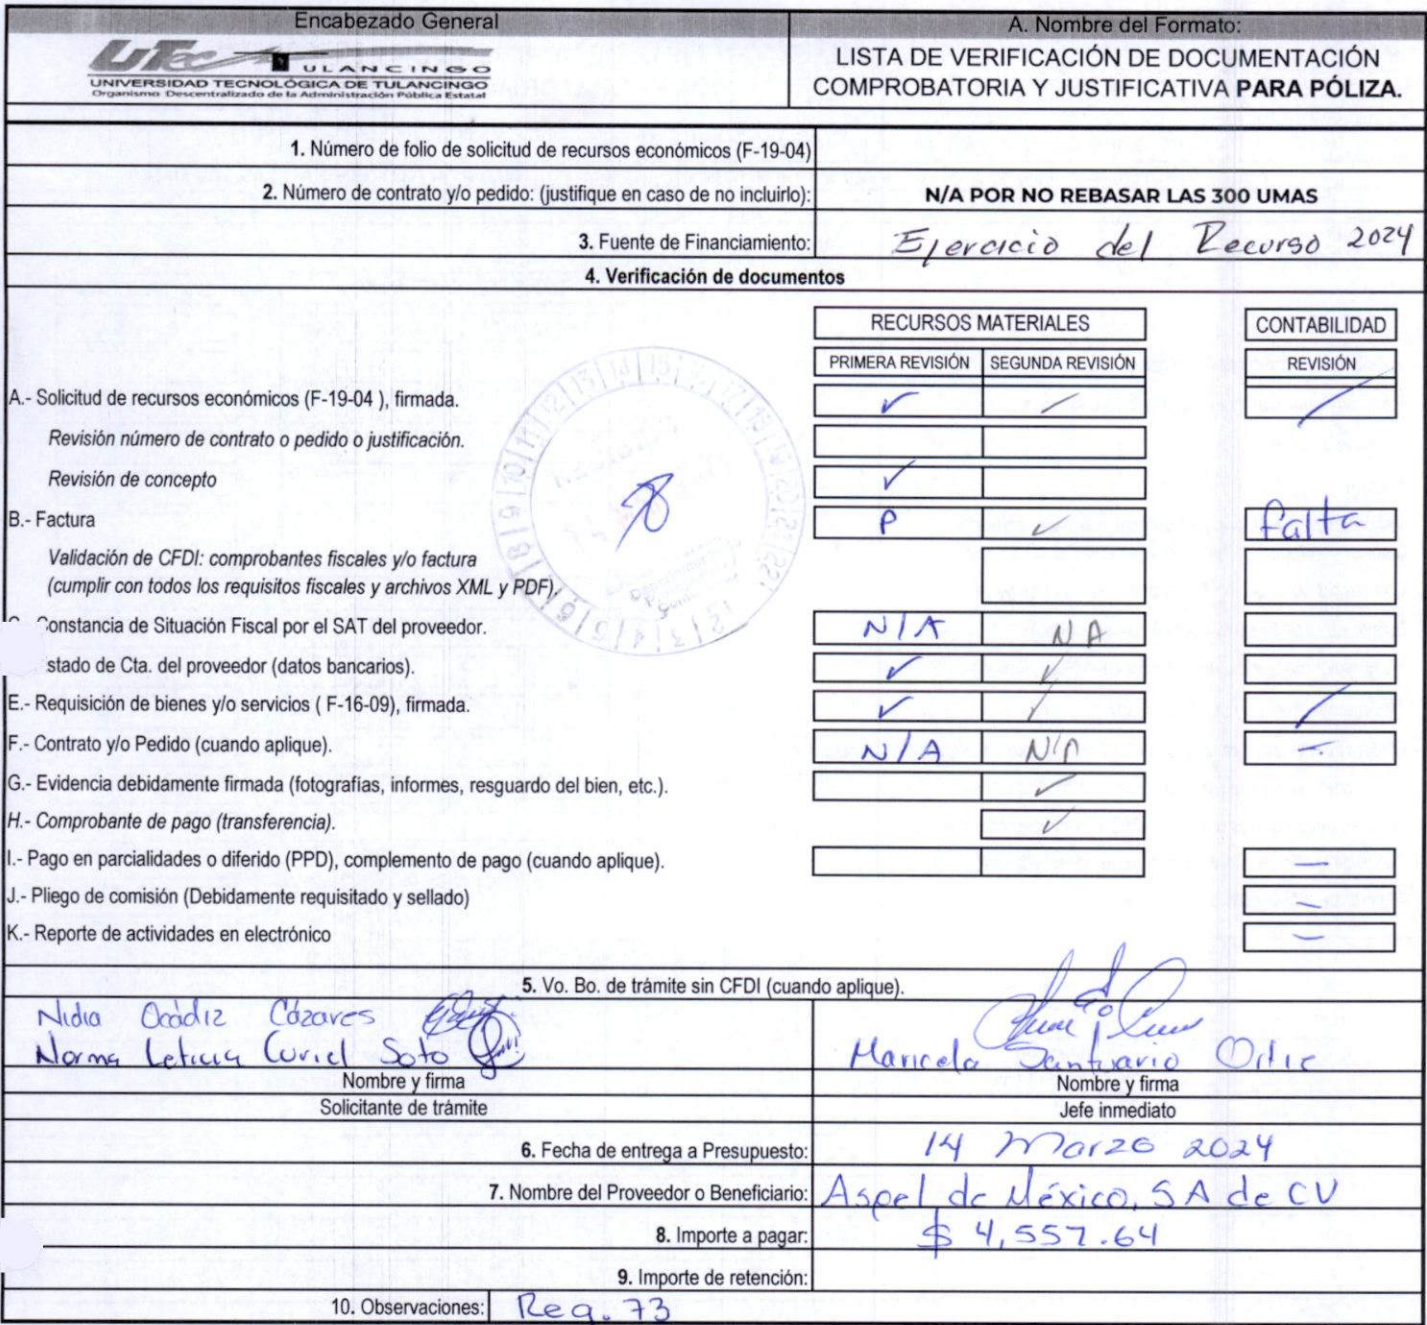 Encabezado General
A. Nombre del Formato:
UTec TULANCINGO
UNIVERSIDAD TECNOLÓGICA DE TULANCINGO
Organismo Descentralizado de la Administración Pública Estatal
LISTA DE VERIFICACIÓN DE DOCUMENTACIÓN
COMPROBATORIA Y JUSTIFICATIVA PARA PÓLIZA.
1. Número de folio de solicitud de recursos económicos (F-19-04)
2. Número de contrato y/o pedido: (justifique en caso de no incluirlo): N/A POR NO REBASAR LAS 300 UMAS
3. Fuente de Financiamiento: Ejercicio del Recurso 2024
4. Verificación de documentos
RECURSOS MATERIALES CONTABILIDAD
PRIMERA REVISIÓN SEGUNDA REVISIÓN REVISIÓN
A.- Solicitud de recursos económicos (F-19-04 ), firmada. ✓ ✓ /
Revisión número de contrato o pedido o justificación.
Revisión de concepto ✓
B.- Factura P ✓ falta
Validación de CFDI: comprobantes fiscales y/o factura
(cumplir con todos los requisitos fiscales y archivos XML y PDF).
Constancia de Situación Fiscal por el SAT del proveedor. N/A N A
stado de Cta. del proveedor (datos bancarios). ✓ ✓
E.- Requisición de bienes y/o servicios ( F-16-09), firmada. ✓ ✓ /
F.- Contrato y/o Pedido (cuando aplique). N/A N/A —
G.- Evidencia debidamente firmada (fotografías, informes, resguardo del bien, etc.). ✓
H.- Comprobante de pago (transferencia). ✓
I.- Pago en parcialidades o diferido (PPD), complemento de pago (cuando aplique). —
J.- Pliego de comisión (Debidamente requisitado y sellado) —
K.- Reporte de actividades en electrónico —
5. Vo. Bo. de trámite sin CFDI (cuando aplique).
Nidia Ocádiz Cázares
Norma Leticia Curiel Soto
Maricela Santuario Ortiz
Nombre y firma
Nombre y firma
Solicitante de trámite
Jefe inmediato
6. Fecha de entrega a Presupuesto: 14 Marzo 2024
7. Nombre del Proveedor o Beneficiario: Aspel de México, S A de CV
8. Importe a pagar: $ 4,557.64
9. Importe de retención:
10. Observaciones: Req. 73